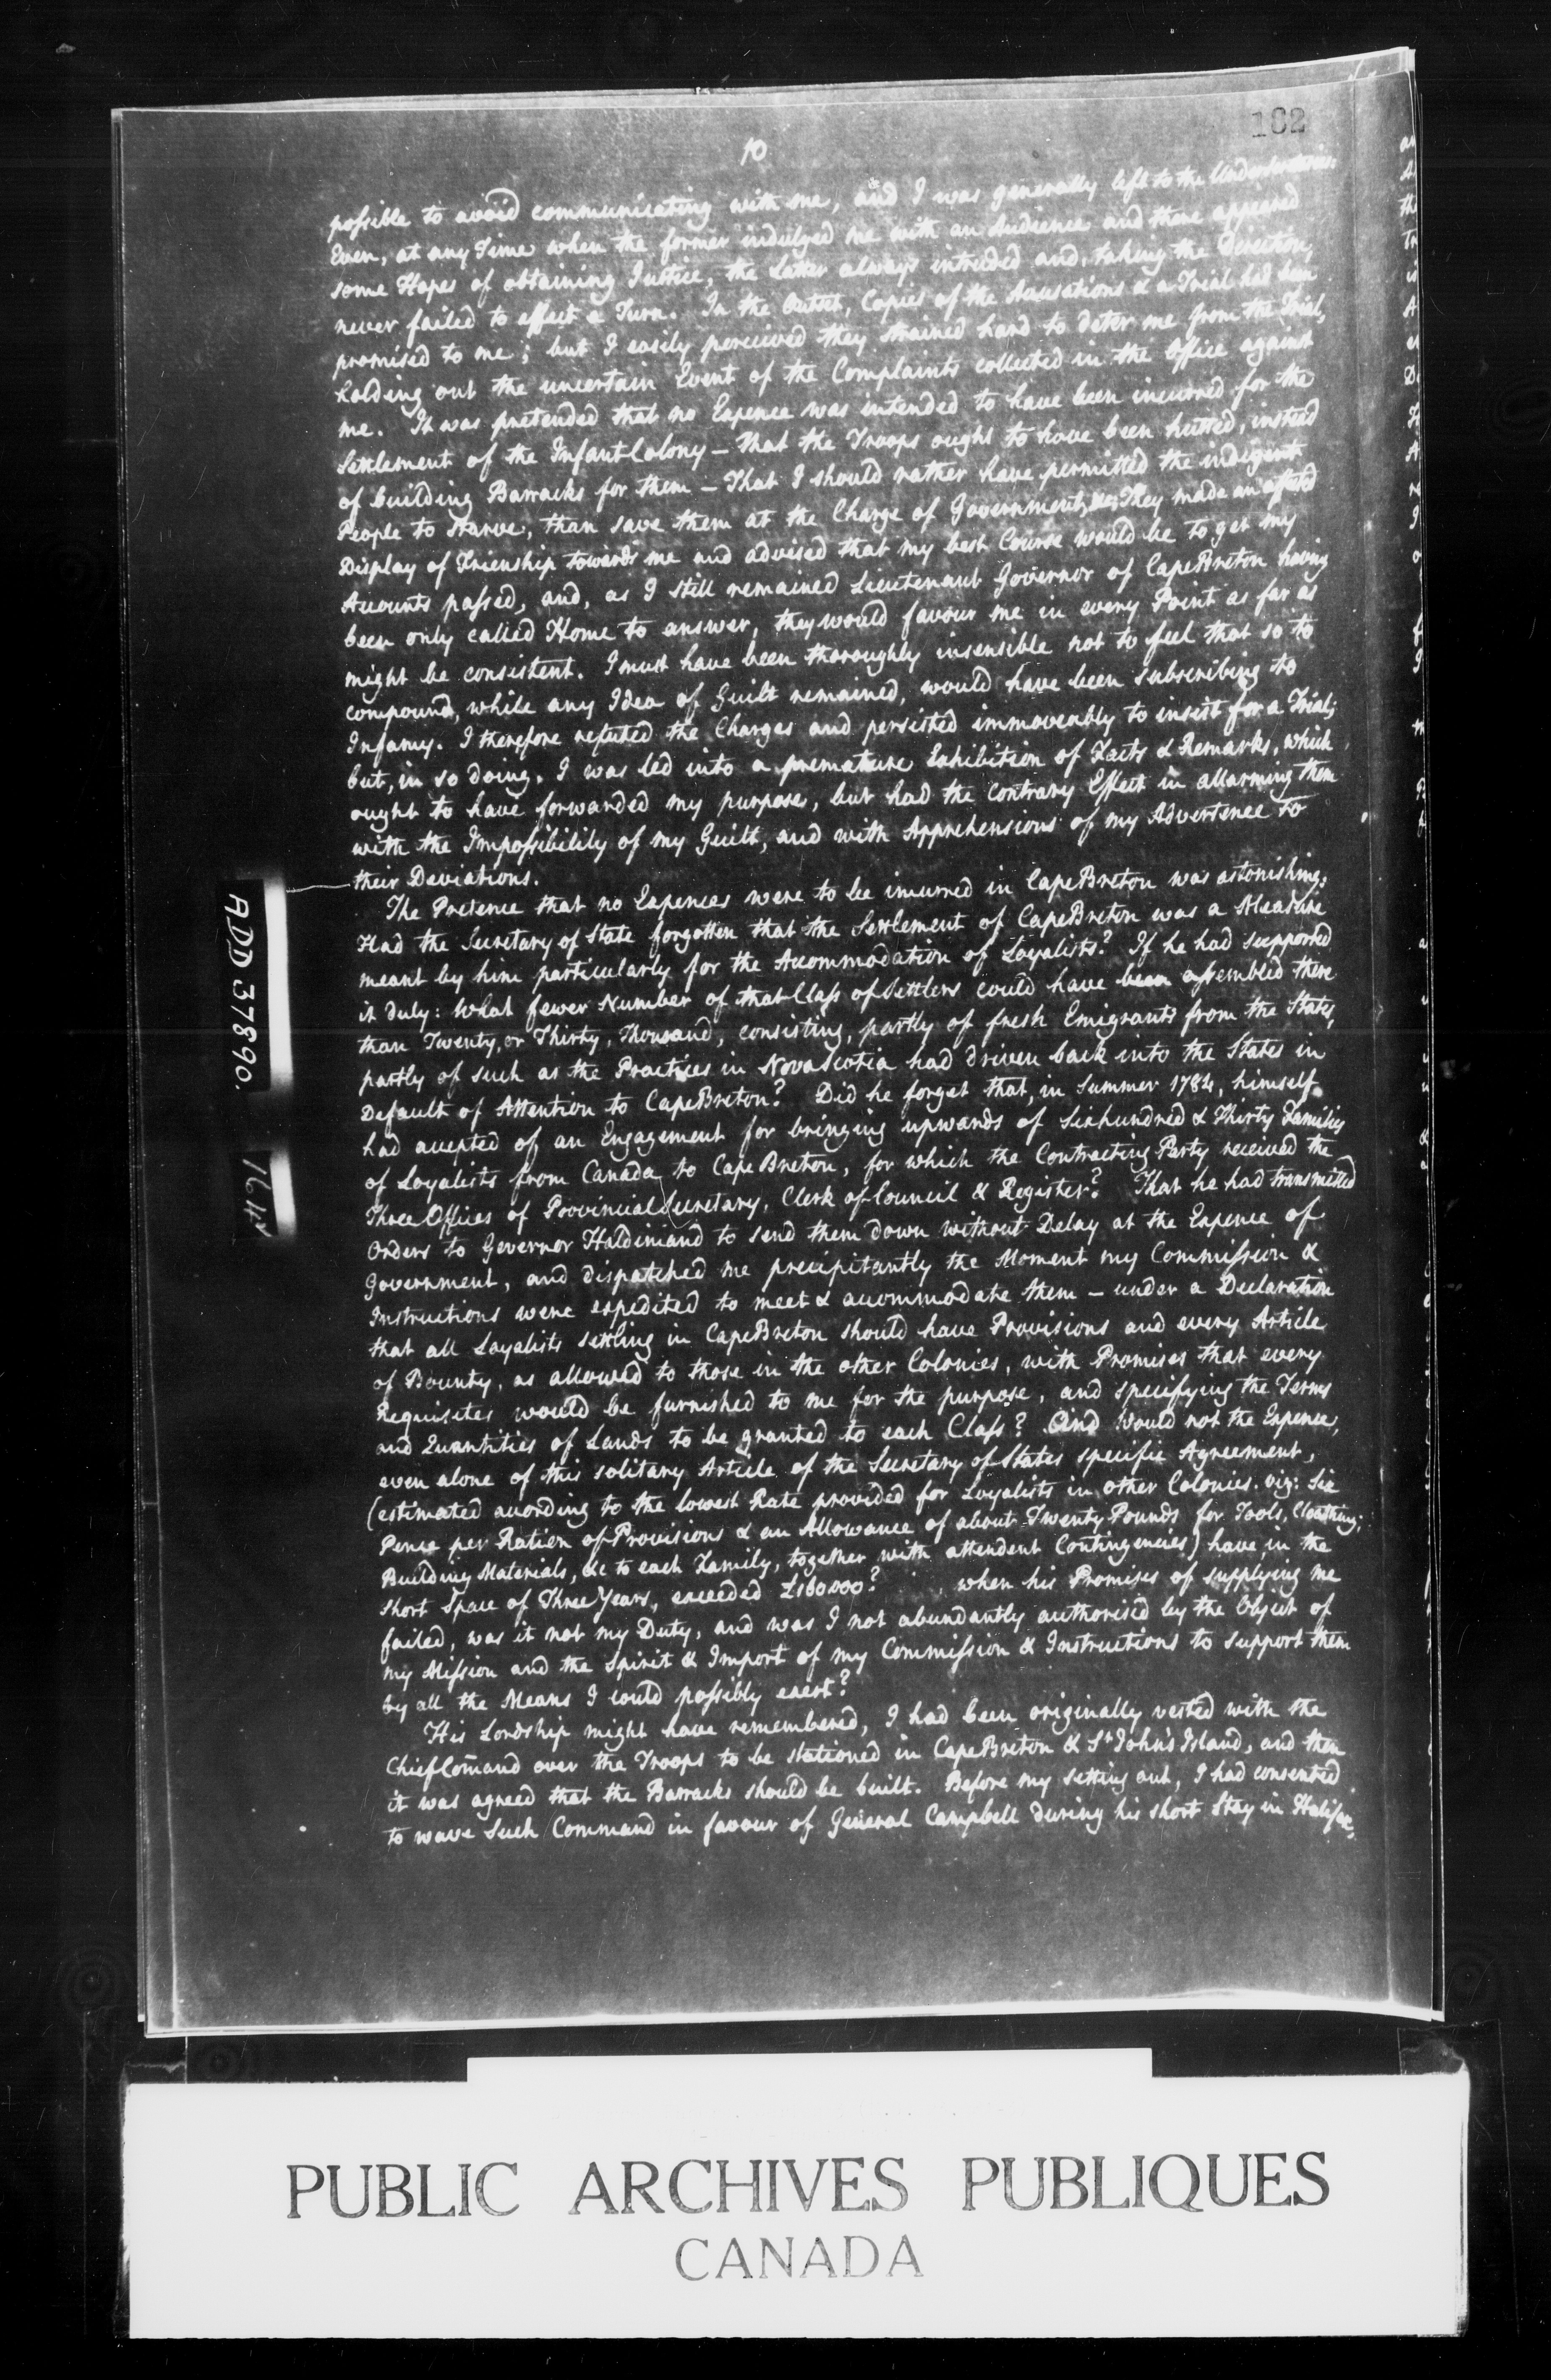 182
10
possible to avoid communicating with me, and I was generally left to the
Even, at any Time when the former indulged me with an Audience and there appeared
some Hopes of obtaining Justice, the Latter always intruded and, taking the Direction,
never failed to effect a Turn. In the Outset, Copies of the Accusations & a Trial had been
promised to me; but I easily perceived they strained hard to deter me from the Trial,
holding out the uncertain Event of the Complaints collected in the Office against
me. It was pretended that no Expence was intended to have been incurred for the
Settlement of the Infant Colony – That the Troops ought to have been hutted, instead
of building Barracks for them – That I should rather have permitted the indigent
People to starve, than save them at the Charge of Government, &c; They made an affected
Display of Frienship towards me and advised that my best Course would be to get my
Accounts passed, and, as I still remained Lieutenant Governor of Cape Breton having
been only called Home to answer, they would favour me in every Point as far as
might be consistent. I must have been thoroughly insensible not to feel that so to
compound, while any Idea of Guilt remained, would have been subscribing to
Infamy. I therefore refuted the Charges and persisted immoveably to insist for a Trial;
but, in so doing, I was led into a premature Exhibition of Facts & Remarks, which
ought to have forwarded my purpose, but had the contrary Effect in allarming them
with the Impossibility of my Guilt, and with Apprehensions of my Advertence to
their Deviations.
The Pretence that no Expences were to be incurred in Cape Breton was astonishing.
Had the Secretary of State forgotten that the Settlement of Cape Breton was a Measure
meant by him particularly for the Accommodation of Loyalists? If he had supported
it duly: What fewer Number of that Class of Settlers could have been assembled there
than Twenty, or Thirty, Thousand, consisting, partly of fresh Emigrants from the States,
partly of such as the Practices in Nova Scotia had driven back into the States in
Default of Attention to Cape Breton? Did he forget that, in Summer 1784, himself
had accepted of an Engagement for bringing upwards of Sixhundred & Thirty Families
of Loyalists from Canada to Cape Breton, for which the Contracting Party received the
Three Offices of Provincial Secretary, Clerk of Council & Register? That he had transmitted
Orders to Governor Haldimand to send them down without Delay at the Expence of
Government, and dispatched me precipitantly the Moment my Commission &
Instructions were expedited to meet & accommodate them – under a Declaration
that all Loyalists settling in Cape Breton should have Provisions and every Article
of Bounty, as allowed to those in the other Colonies, with Promises that every
Requisites would be furnished to me for the purpose, and specifying the Terms
and Quantities of Lands to be granted to each Class? And would not the Expence,
even alone of this solitary Article of the Secretary of States specific Agreement,
(estimated according to the lowest Rate provided for Loyalists in other Colonies. viz: Six
Pence per Ration of Provisions & an Allowance of about Twenty Pounds for Tools, Cloathing,
Building Materials, &c to each Family, together with attendent Contingencies) have, in the
short Space of Three Years, exceeded £160.000? when his Promises of supplying me
failed, was it not my Duty, and was I not abundantly authorised by the Object of
my Mission and the Spirit & Import of my Commission & Instructions to support them
by all the Means I could possibly exert?
His Lordship might have remembered, I had been originally vested with the
Chief Comand over the Troops to be stationed in Cape Breton & St John's Island, and then
it was agreed that the Barracks should be built. Before my setting out, I had consented
to wave such Command in favour of General Campbell during his short Stay in Halifax,
ADD 37890.
164
PUBLIC ARCHIVES PUBLIQUES
CANADA